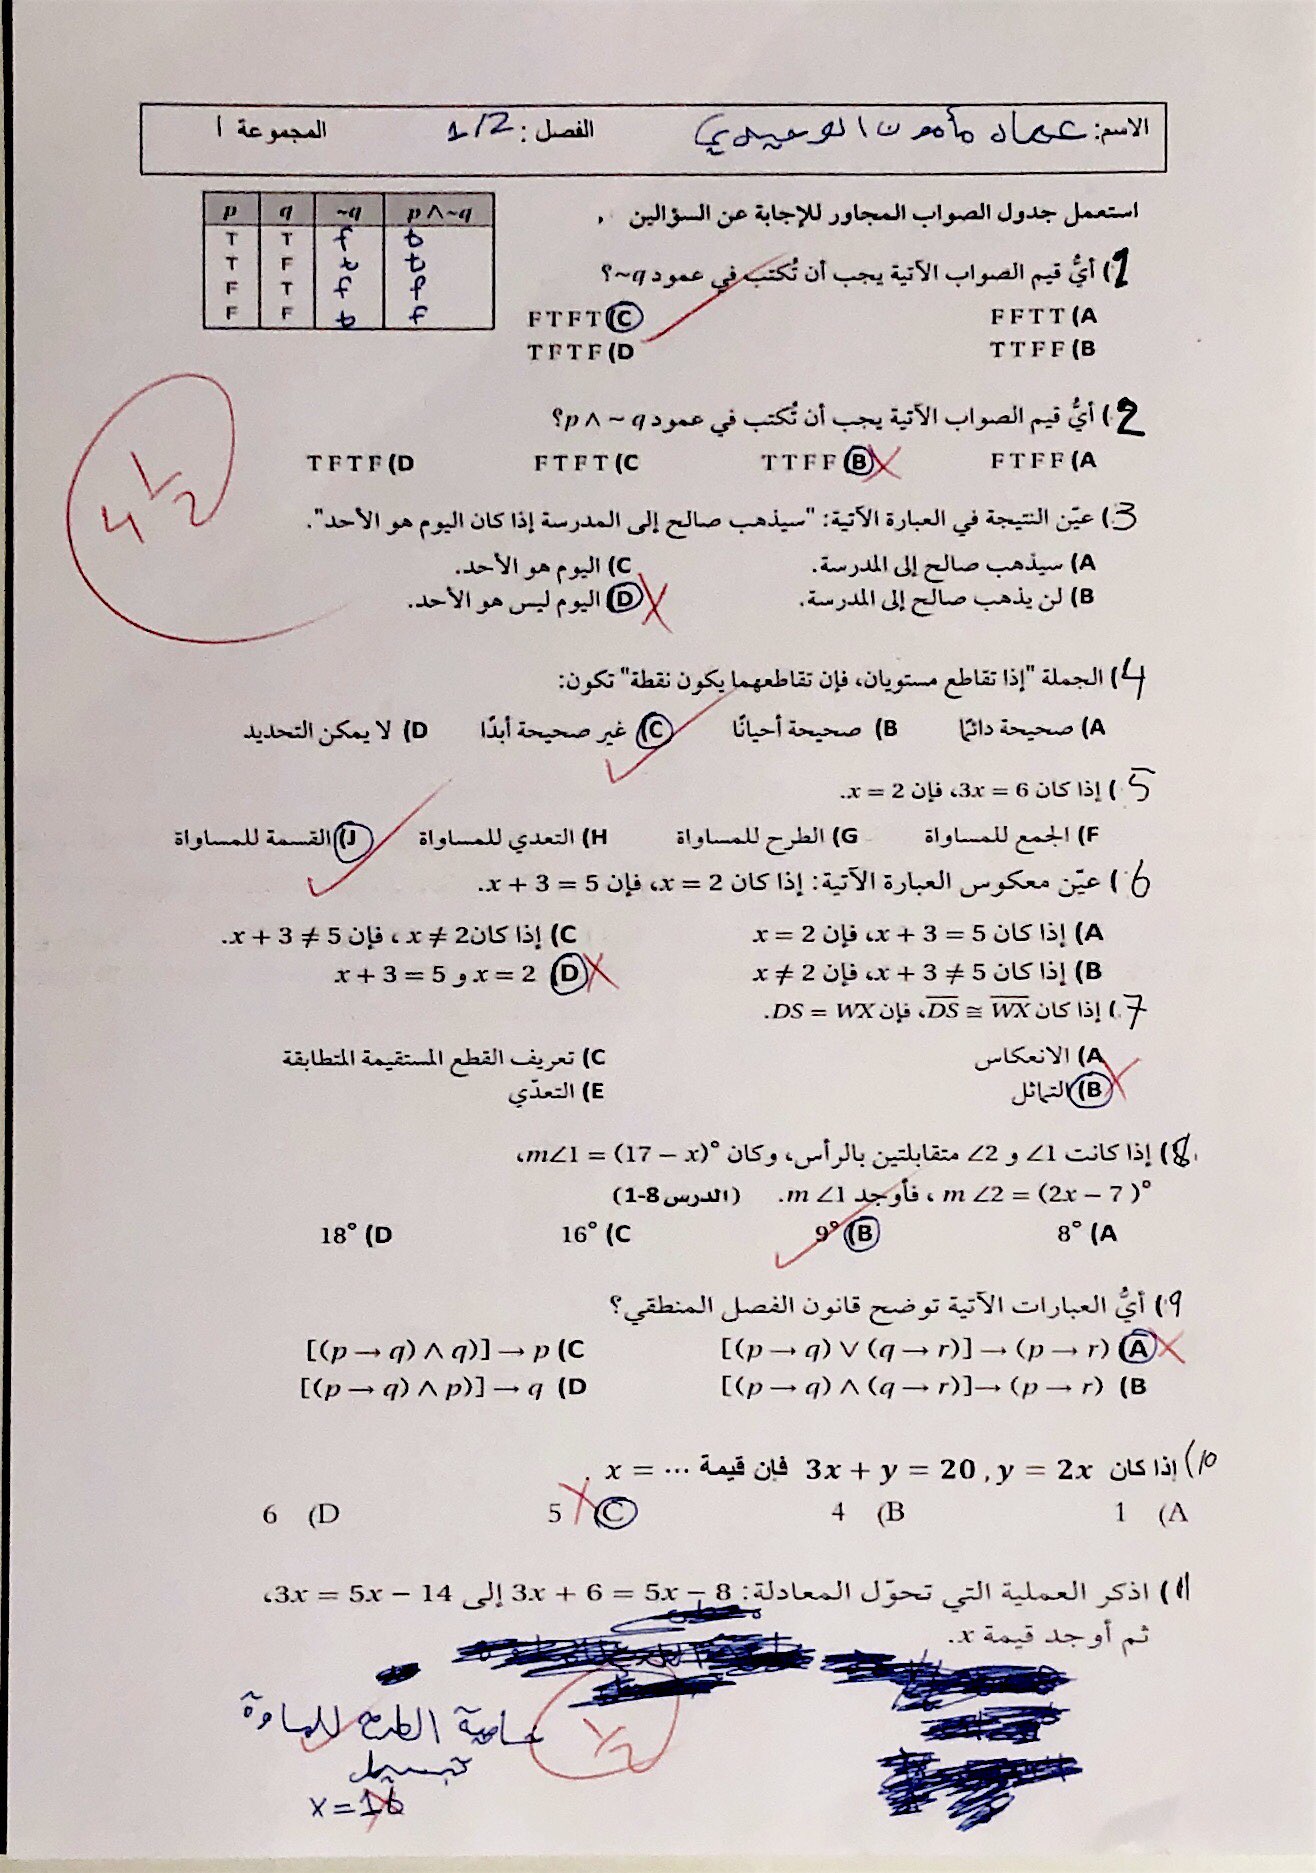 الاسم: عماد مأمون الوحيدي الفصل: 1/2 المجموعة ا
استعمل جدول الصواب المجاور للإجابة عن السؤالين .
p q ~q p ∧ ~q
T T f t
T F t t
F T f f
F F t f
1) أيُّ قيم الصواب الآتية يجب أن تُكتب في عمود q~؟
A) F F T T C) F T F T
B) T T F F D) T F T F
2) أيُّ قيم الصواب الآتية يجب أن تُكتب في عمود p ∧ ~ q؟
A) F T F F B) T T F F C) F T F T D) T F T F
4 1/2
3) عيّن النتيجة في العبارة الآتية: "سيذهب صالح إلى المدرسة إذا كان اليوم هو الأحد".
A) سيذهب صالح إلى المدرسة. C) اليوم هو الأحد.
B) لن يذهب صالح إلى المدرسة. D) اليوم ليس هو الأحد.
4) الجملة "إذا تقاطع مستويان، فإن تقاطعهما يكون نقطة" تكون:
A) صحيحة دائمًا B) صحيحة أحيانًا C) غير صحيحة أبدًا D) لا يمكن التحديد
5) إذا كان 3x = 6، فإن x = 2.
F) الجمع للمساواة G) الطرح للمساواة H) التعدي للمساواة J) القسمة للمساواة
6) عيّن معكوس العبارة الآتية: إذا كان x = 2، فإن x + 3 = 5.
A) إذا كان x + 3 = 5، فإن x = 2 C) إذا كان x ≠ 2 ، فإن x + 3 ≠ 5.
B) إذا كان x + 3 ≠ 5، فإن x ≠ 2 D) x = 2 و x + 3 = 5
7) إذا كان D̅S̅ ≅ W̅X̅، فإن DS = WX.
A) الانعكاس C) تعريف القطع المستقيمة المتطابقة
B) التماثل E) التعدّي
8) إذا كانت ∠1 و ∠2 متقابلتين بالرأس، وكان m∠1 = (17 − x)°،
m ∠2 = (2x − 7 )° ، فأوجد m ∠1. (الدرس 8-1)
A) 8° B) 9° C) 16° D) 18°
9) أيُّ العبارات الآتية توضح قانون الفصل المنطقي؟
A) [(p → q) ∨ (q → r)] → (p → r) C) [(p → q) ∧ q)] → p
B) [(p → q) ∧ (q → r)]→ (p → r) D) [(p → q) ∧ p)] → q
10) إذا كان 3x + y = 20 , y = 2x فإن قيمة x = ⋯ .
A) 1 B) 4 C) 5 D) 6
11) اذكر العملية التي تحوّل المعادلة: 3x + 6 = 5x − 8 إلى 3x = 5x − 14،
ثم أوجد قيمة x.
خاصية الطرح للمساوة
1/2
تبسيط
x = 16